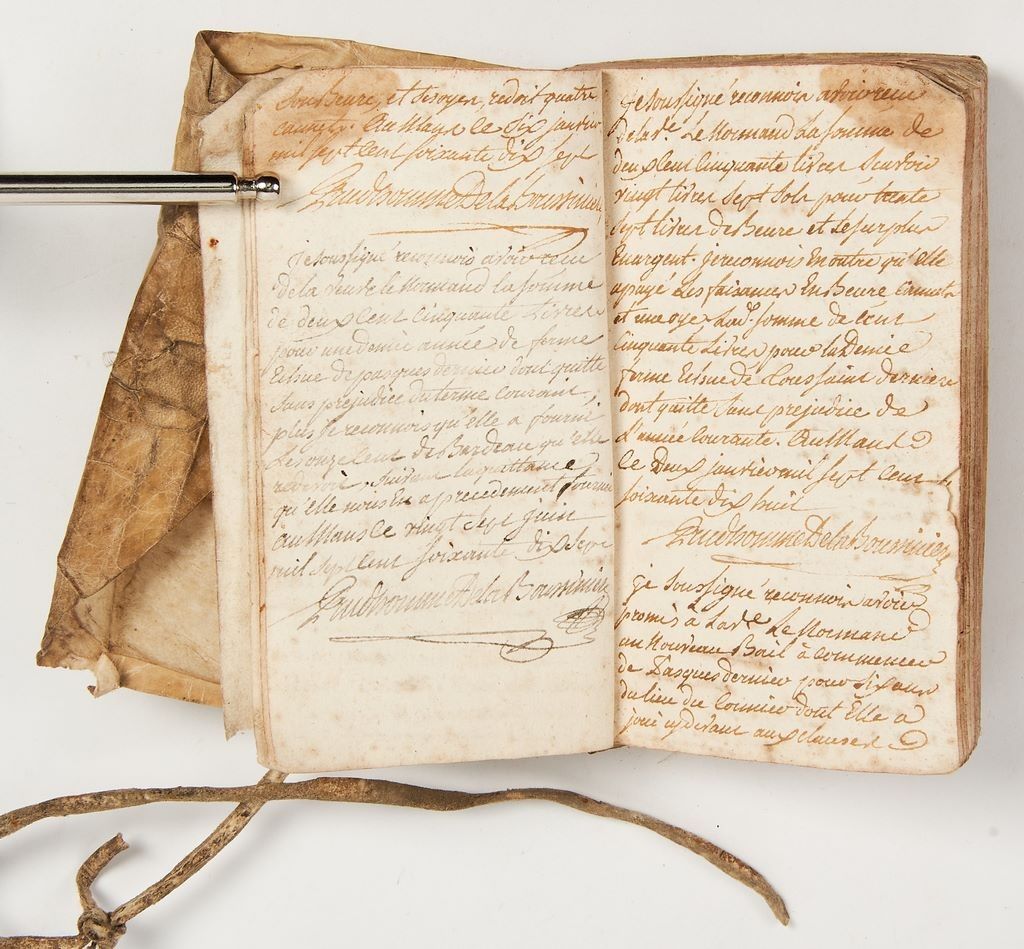 sous Beure, et Six oyes, redoit quatre
cannets. Au Mans ce Six janvier
mil sept cent soixante dix sept
Prudhomme De la Bourvinière
je soussigné reconnois avoir receu
de la veuve le Normand la somme
de deux cent cinquante Livres
pour une demie année de ferme
Echue de pasques dernier dont quitte
sans prejudice du terme courant.
plus je reconnois qu'elle a fourni
Le onze cent de Bardeau qu'elle
suivant la quittance
qu'elle nous En a precedement fournie
au Mans ce vingt sept juin
mil sept cent soixante dix sept
Prudhomme De la Bourvinière
je soussigné reconnois avoir receu
De la ve. Le Normand La somme de
deux cent cinquante livres sçavoir
vingt livres sept sols pour trente
sept livres de Beure et le surplus
En argent. je reconnois En outre qu'elle
a payé Les faisances En Beure Cannets
et une oye Lad. somme de cent
cinquante Livres pour la Demie
ferme Echue De Toussaint derniere
dont quitte sans prejudice de
L'année Courante. Au Mans
ce Deux janvier mil sept cent
soixante dix huit
Prudhomme De la Bourvinière
je soussigné reconnois avoir
promis à La ve. Le Normand
un Nouveau Bail à commencer
de Pasques dernier pour six ans
du lieu du Cormier dont Elle a
joui cy devant aux clauses